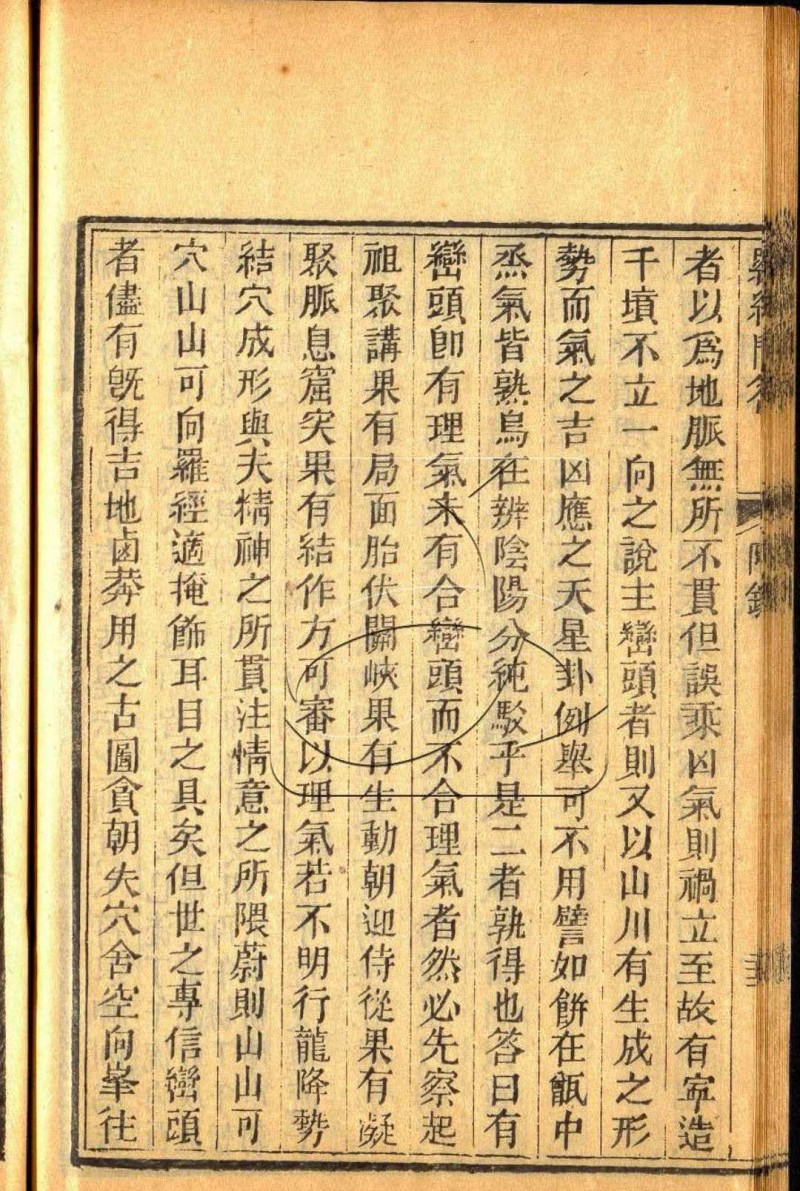 者以爲地脈無所不貫但誤乘凶氣則禍立至故有寧造
千墳不立一向之說主巒頭者則又以山川有生成之形
勢而氣之吉凶應之天星卦例舉可不用譬如餅在甑中
烝氣皆熟烏在辨陰陽分純駁乎是二者孰得也答曰有
巒頭卽有理氣未有合巒頭而不合理氣者然必先察起
祖聚講果有局面胎伏關峽果有生動朝迎侍從果有凝
聚脈息窟突果有結作方可審以理氣若不明行龍降勢
結穴成形與夫精神之所貫注情意之所隈蔚則山山可
穴山山可向羅經適掩飾耳目之具矣但世之專信巒頭
者儘有旣得吉地鹵莽用之古圖貪朝失穴舍空向峯往